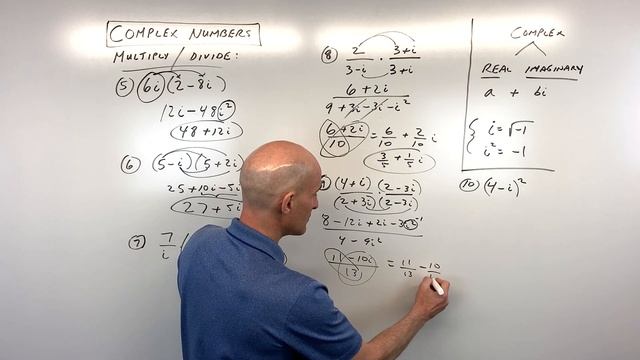 COMPLEX NUMBERS
MULTIPLY / DIVIDE:
⑤ (6i)(2-8i)
12i-48i²
48+12i
⑥ (5-i)(5+2i)
25+10i-5i
27+5i
⑦ 7/i
⑧ 2/(3-i) · (3+i)/(3+i)
(6+2i)/(9+3i-3i-i²)
(6+2i)/10 = 6/10 + 2/10 i
3/5 + 1/5 i
(4+i)/(2+3i) · (2-3i)/(2-3i)
(8-12i+2i-3i²)/(4-9i²) -1
(11-10i)/13 = 11/13 - 10/
COMPLEX
REAL IMAGINARY
a + bi
i=√-1
i²=-1
⑩ (4-i)²